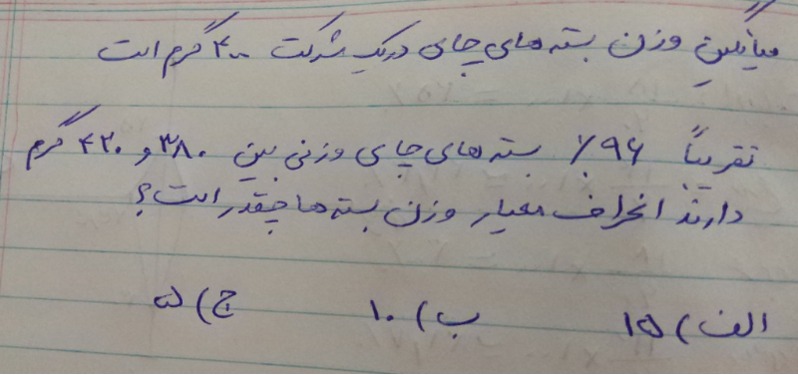 میانگین وزن بسته های چای در یک شرکت ۴۰۰ گرم است
تقریباً ۹۶٪ بسته های چای وزنی بین ۳۸۰ و ۴۲۰ گرم
دارند انحراف معیار وزن بسته ها چقدر است؟
الف) ۱۵ ب) ۱۰ ج) ۵